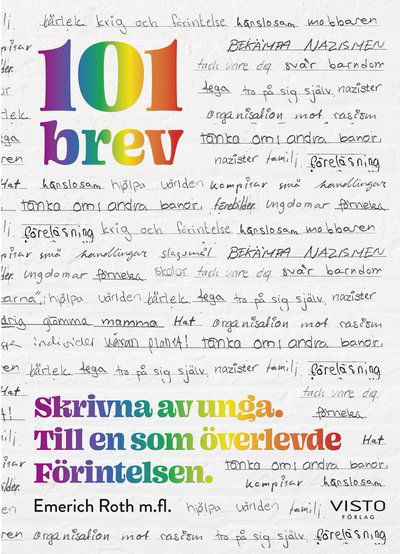 kärlek krig och förintelse känslosam mobbaren
BEKÄMPA NAZISMEN
tack vare dig svår barndom
101
brev
tega tro på sig själv, nazister
organisation mot rasism
tänka om andra banor,
nazister familj föreläsning
Hat känslosam hjälpa världen kompisar små handlingar
tänka om andra banor, förebilder ungdomar förneka
föreläsning krig och förintelse känslosam mobbaren
små handlingar slagsmål BEKÄMPA NAZISMEN
ungdomar förneka skolor tack vare dig svår barndom
hjälpa världen kärlek tega tro på sig själv, nazister
glömma mamma Hat organisation mot rasism
individer våran planet! tänka om andra banor,
kärlek tega tro på sig själv, nazister familj föreläsning
Hat tack vare dig svår barndom
Skrivna av unga.
Till en som överlevde
Förintelsen.
förneka
Hat
tänka om andra banor,
kompisar känslosam
Emerich Roth m.fl.
hjälpa världen familj
VISTO
FÖRLAG
tro på sig själv organisation mot rasism föreläsning